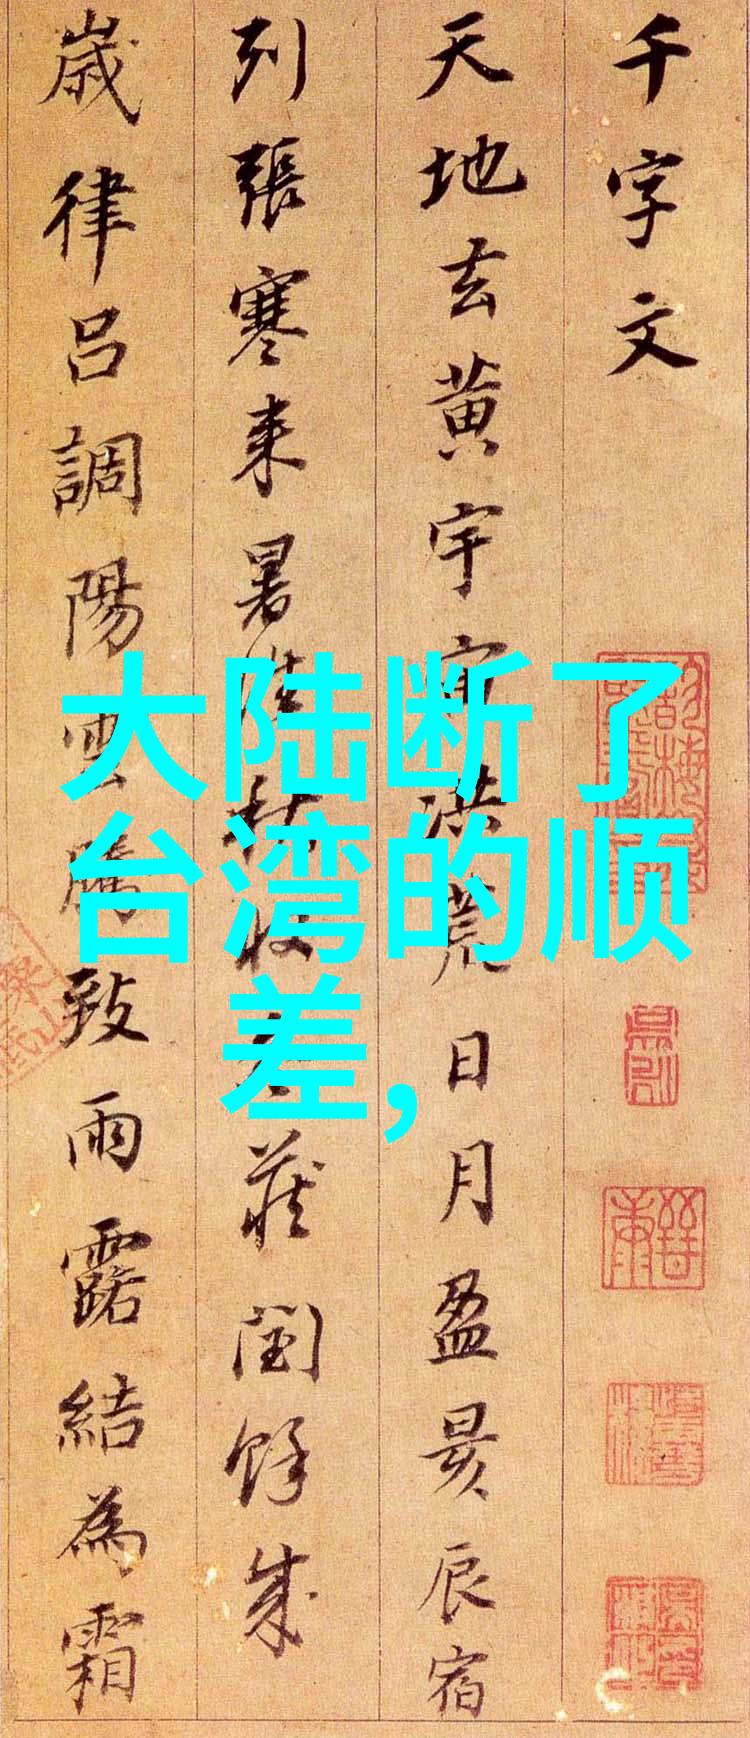 千字文
天地玄黄宇宙洪荒日月盈昃辰宿
列張寒来暑往秋收冬蔵閏餘成
歳律吕調陽雲騰致雨露結為霜
大陆断了
台湾的顺
差,